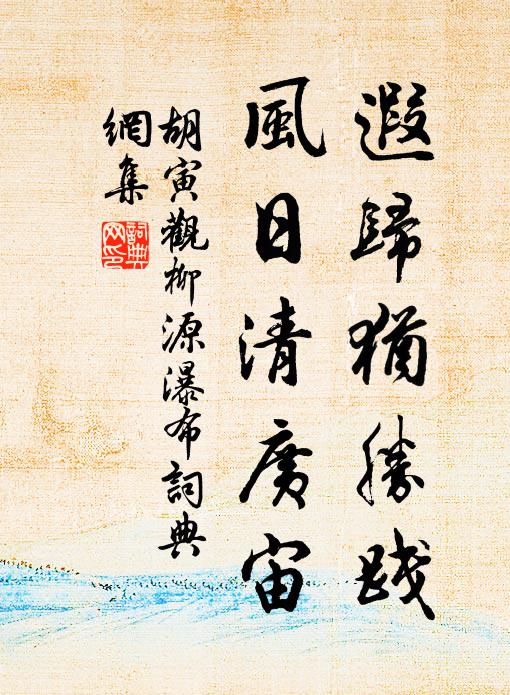 遐歸猶勝踐
風日清廣宙
胡寅觀柳源瀑布詞典
網集
詞典
网印